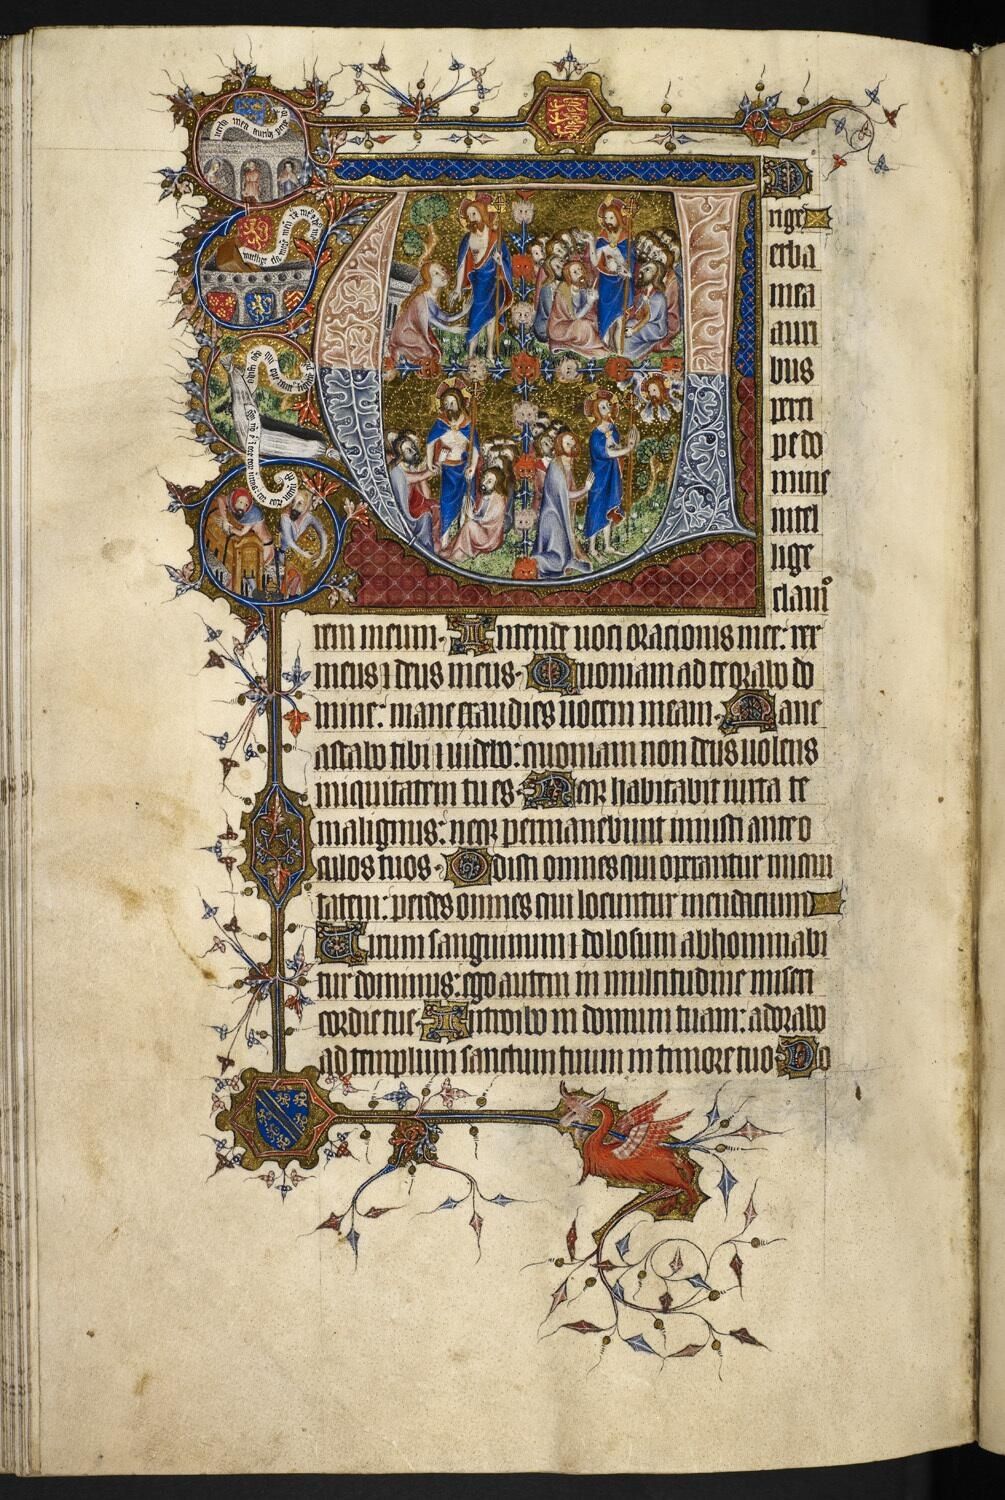 verba mea auribꝫ percipe
D
irige
Verba
mea
auri
bus
perci
pe do
mine
intel
lige
clamo
rem meum. Intende uoci orationis mee: rex
meus ⁊ deus meus. Quoniam ad te orabo do
mine: mane exaudies uocem meam. Mane
astabo tibi ⁊ uidebo: quoniam non deus uolens
iniquitatem tu es. Neqꝫ habitabit iuxta te
malignus: neqꝫ permanebunt iniusti ante o
culos tuos. Odisti omnes qui operantur iniqui
tatem: perdes omnes qui locuntur mendacium
Uirum sanguinum ⁊ dolosum abhominabi
tur dominus: ego autem in multitudine miseri
cordie tue. Introibo in domum tuam: adorabo
ad templum sanctum tuum in timore tuo. Do